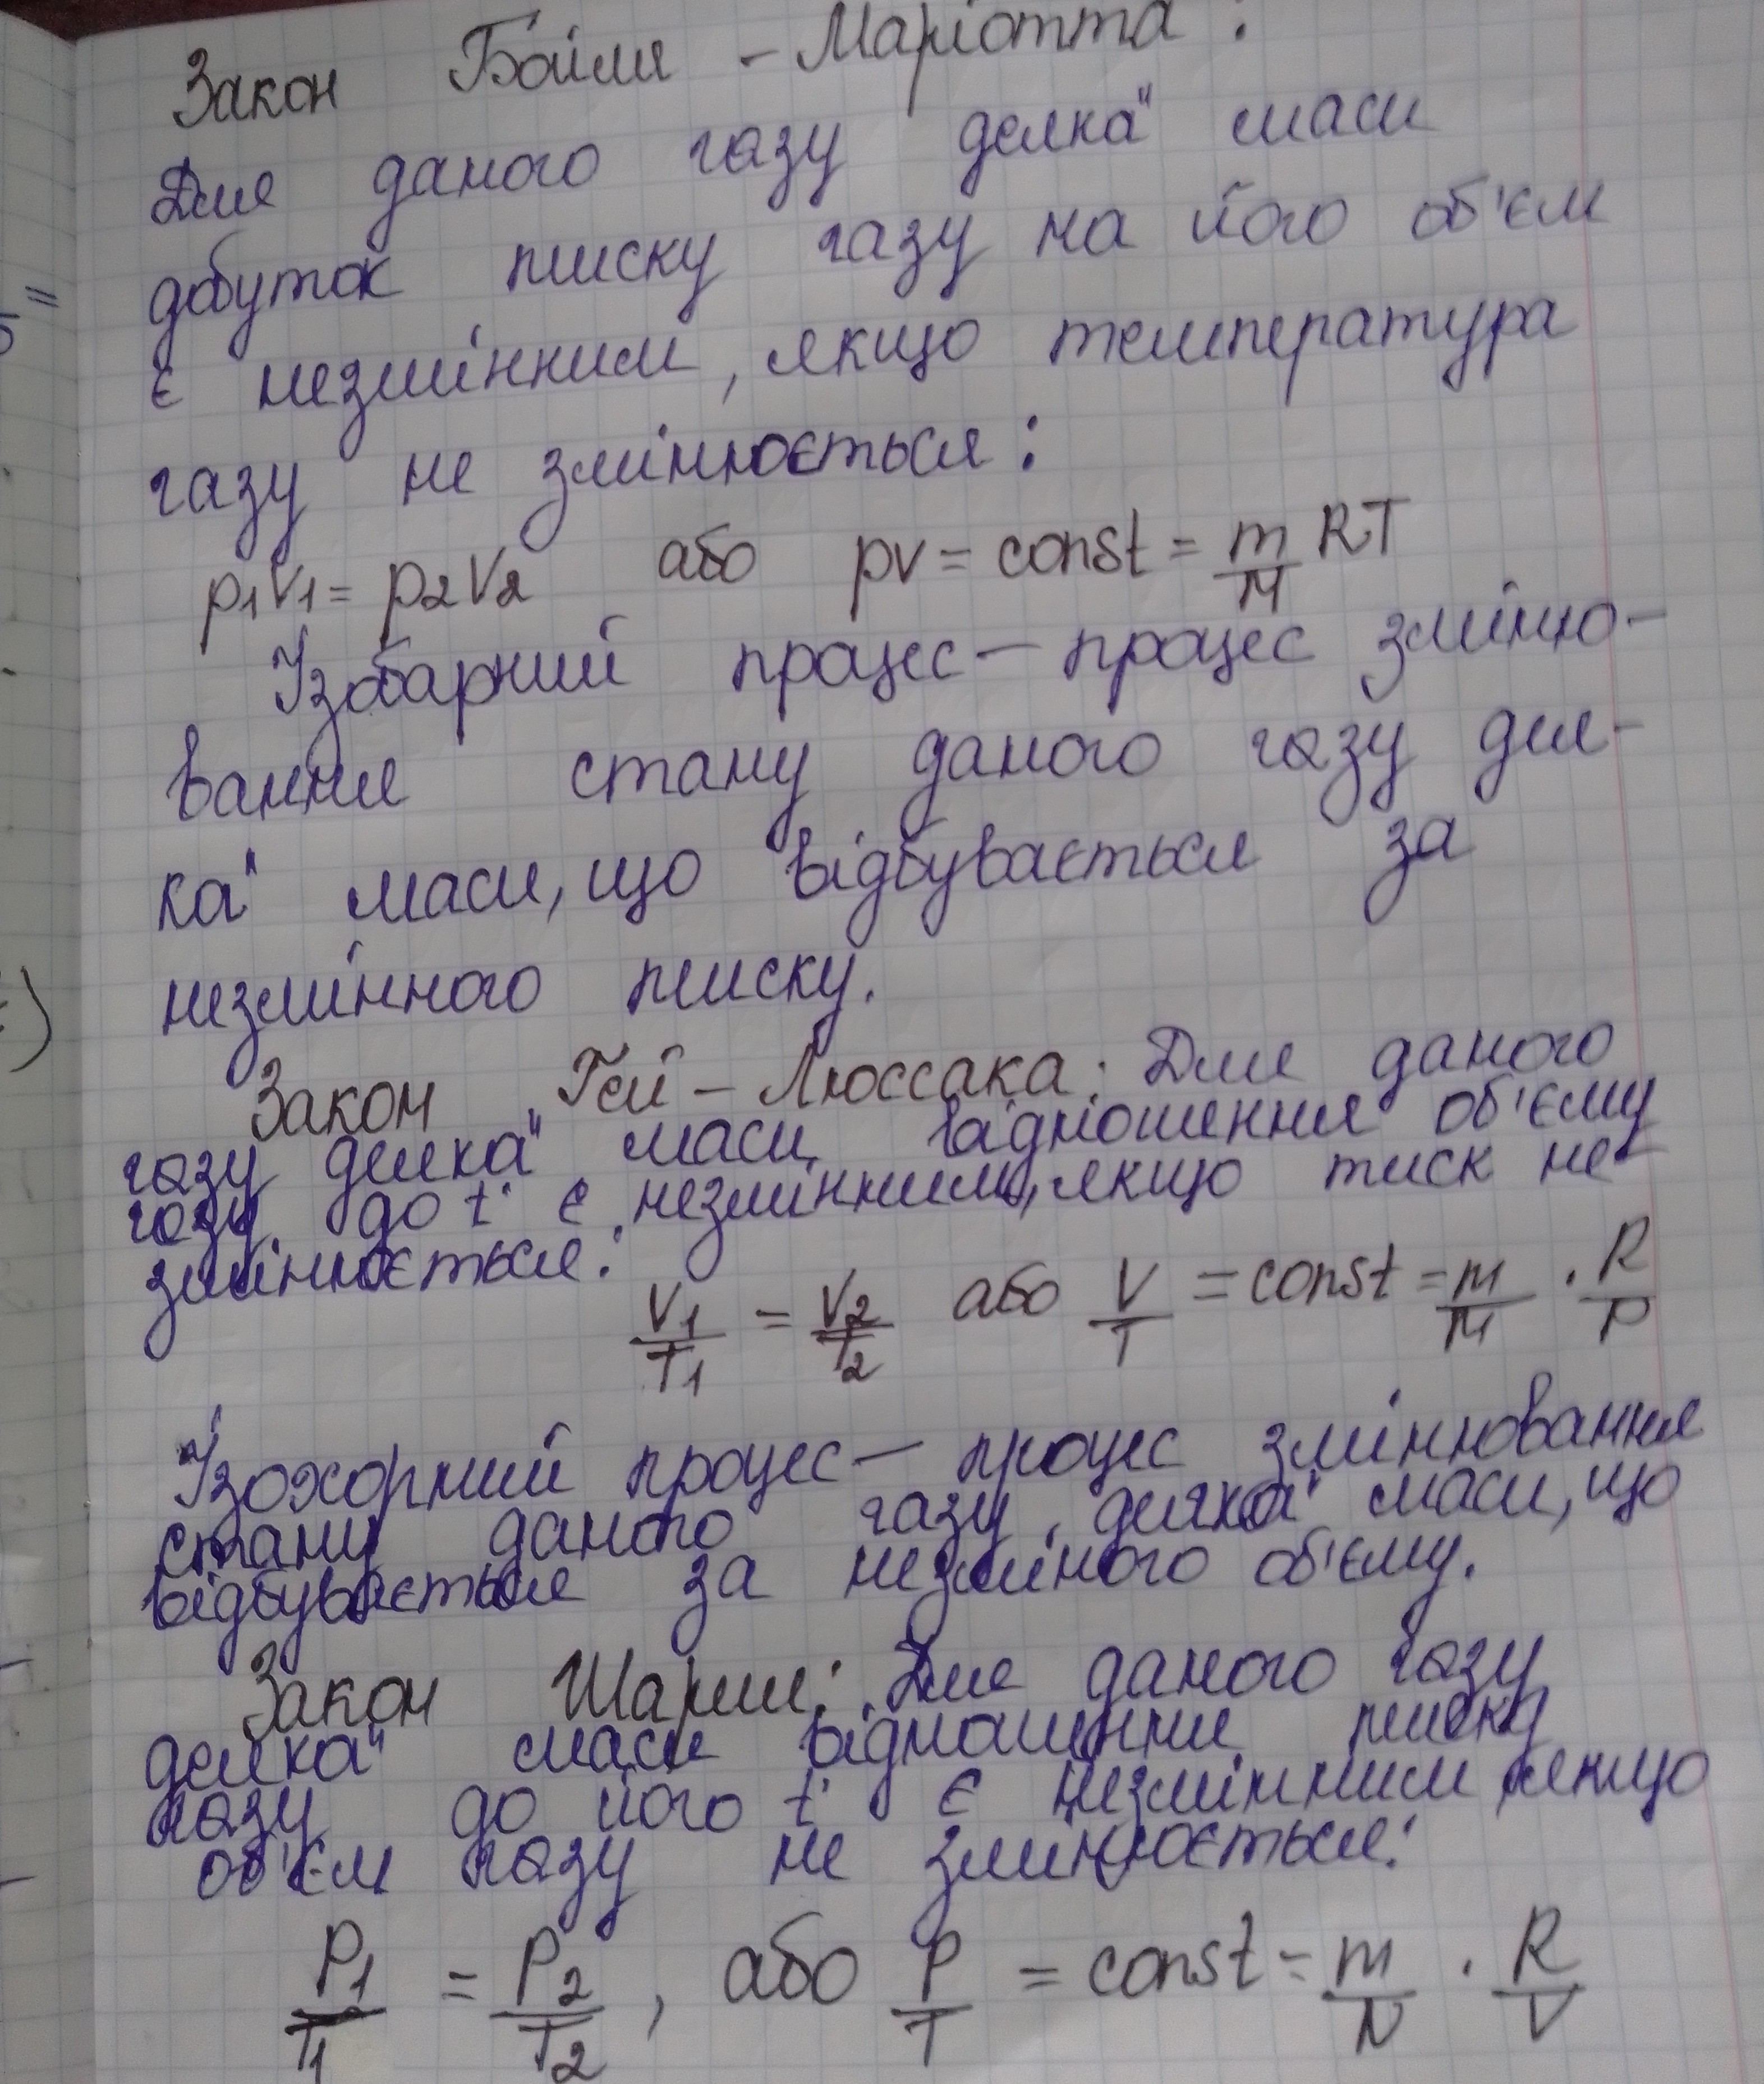 Закон Бойля - Маріотта:
Для даного газу деяка" маси
добуток тиску газу на його об'єм
є незмінним, якщо температура
газу не змінюється:
p₁V₁ = p₂V₂ або pv = const = m/M RT
Ізобарний процес — процес зміню-
вання стану даного газу дея-
ка" маси, що відбувається за
незмінного тиску.
Закон Гей - Люссака: Для даного
газу деяка" маси відношення об'єму
газу до t° є незмінним, якщо тиск не
змінюється:
V₁/T₁ = V₂/T₂ або V/T = const = m/M · R/P
Ізохорний процес — процес змінювання
стану даного газу деяка" маси, що
відбувається за незмінного об'єму.
Закон Шарля: Для даного газу
деяка" маси відношення тиску
газу до його t° є незмінним, якщо
об'єм газу не змінюється:
P₁/T₁ = P₂/T₂, або P/T = const = m/M · R/V